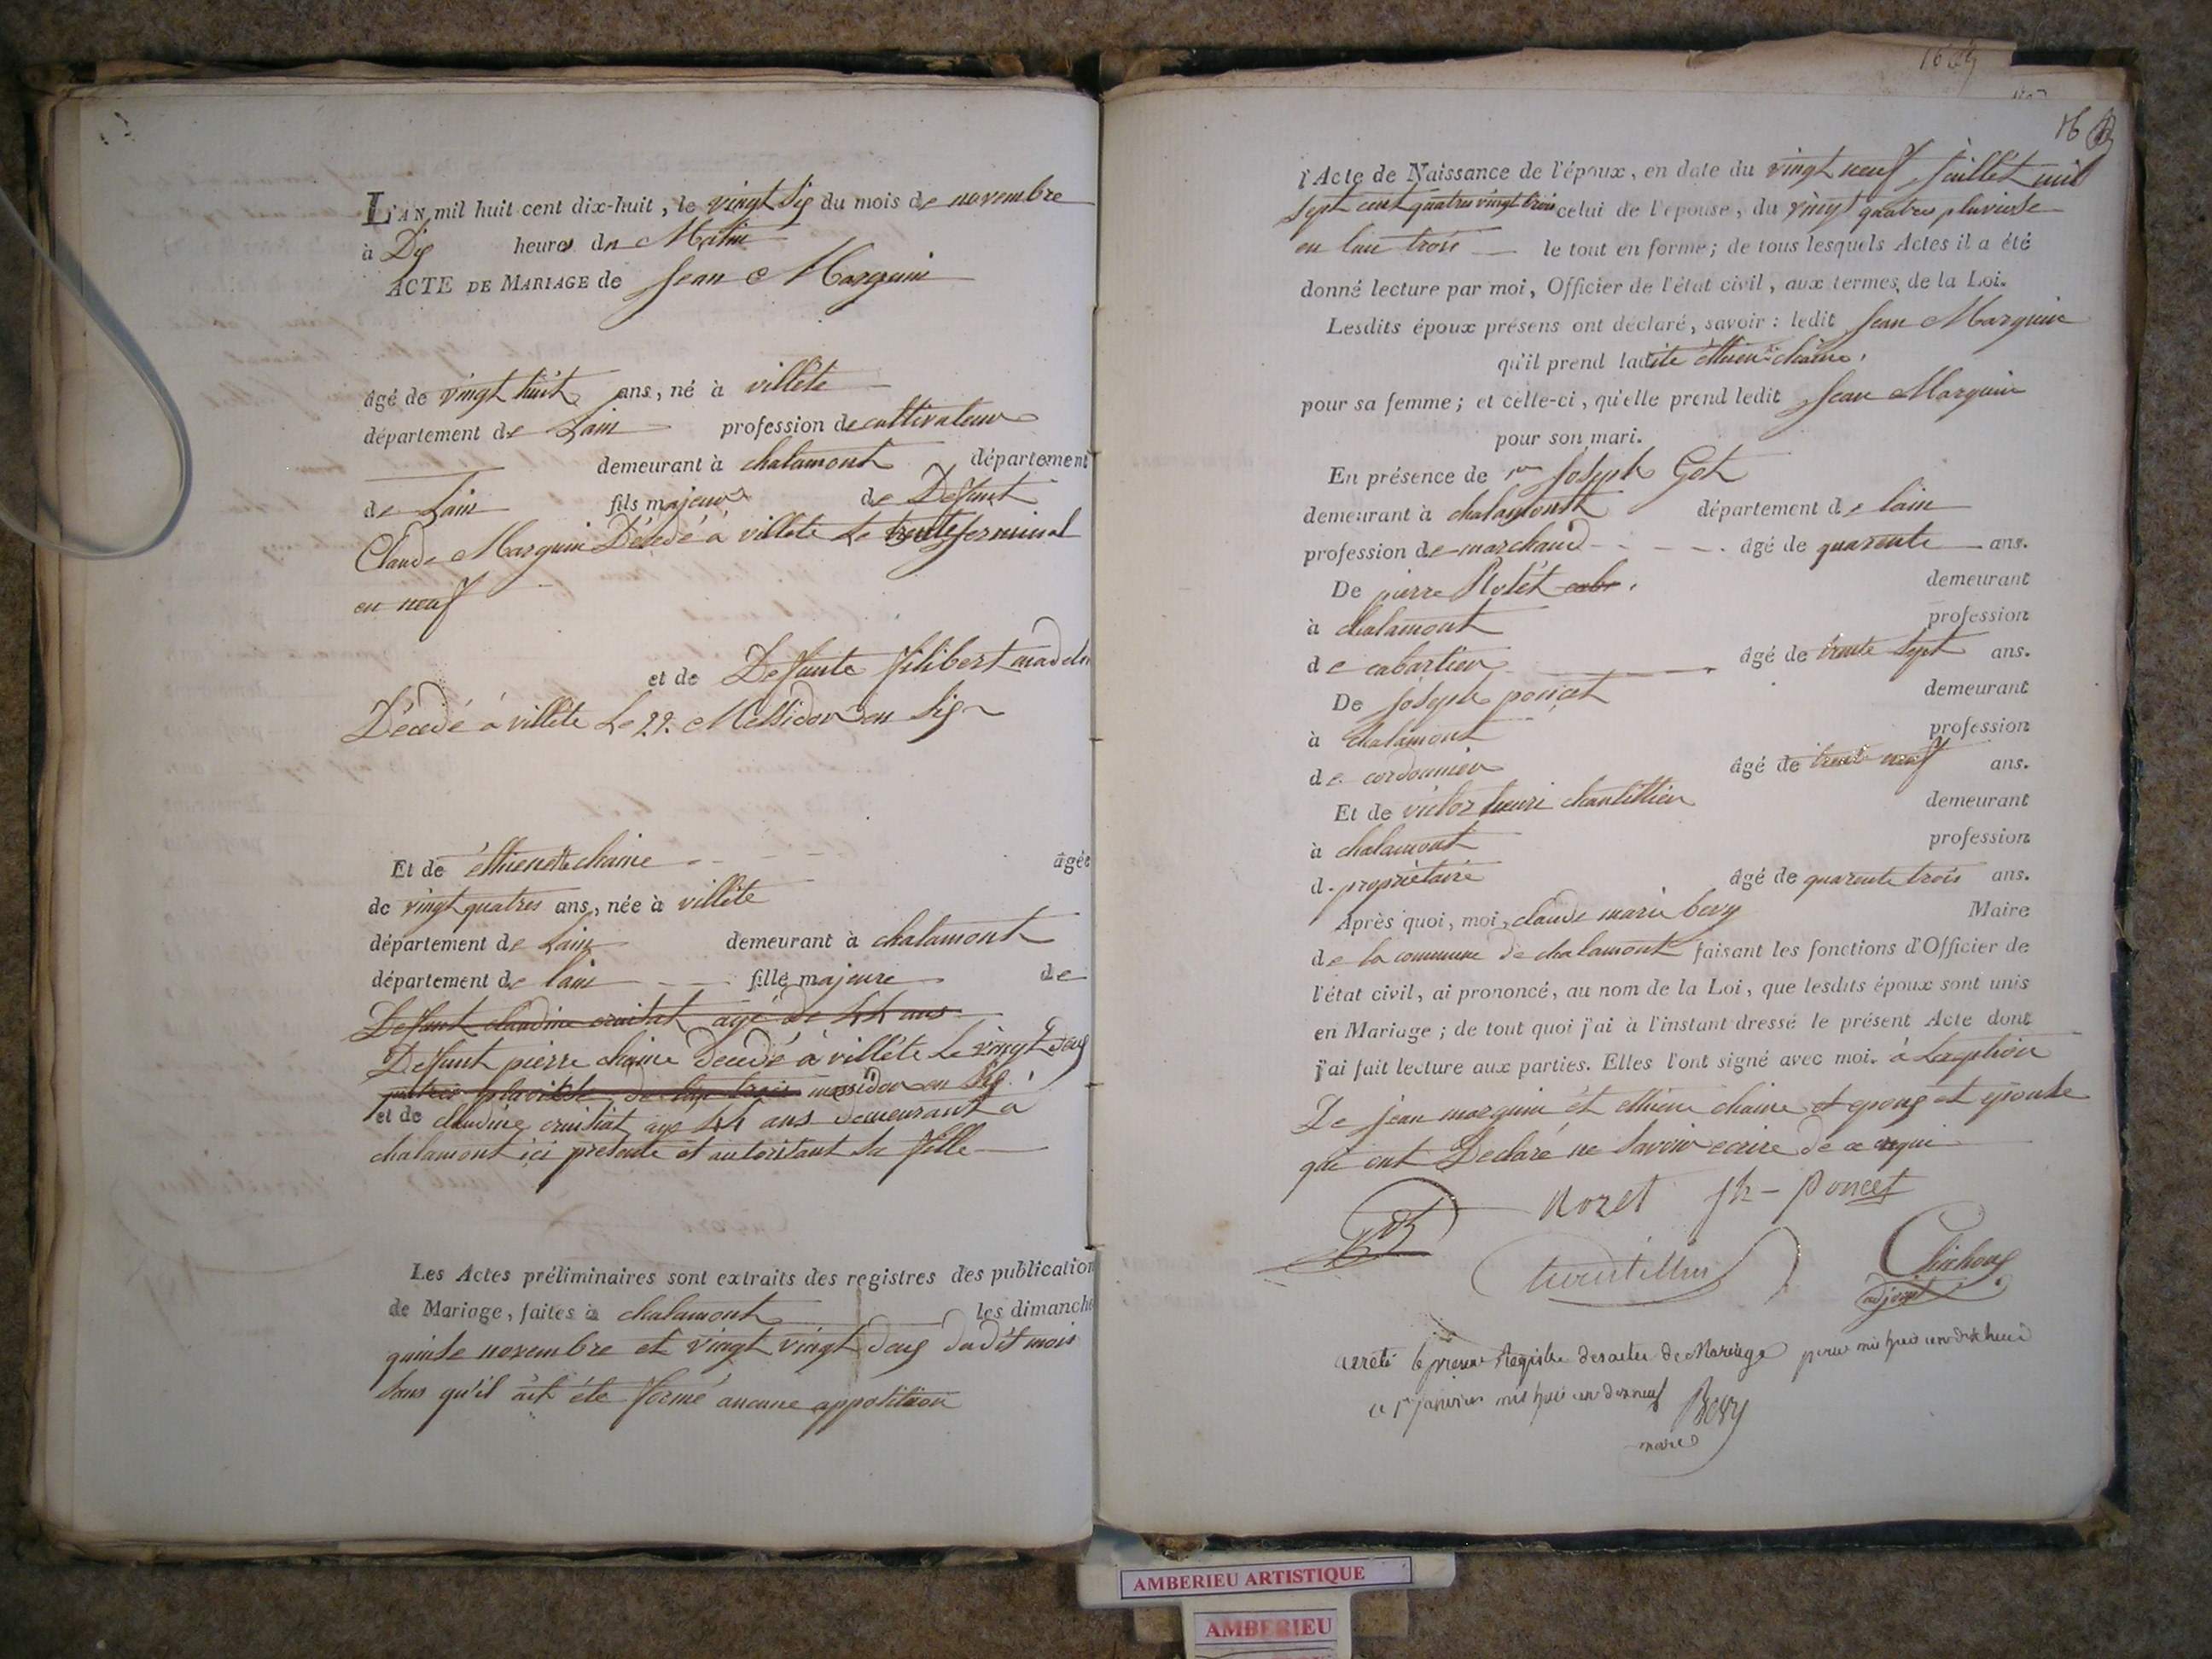 L'AN mil huit cent dix-huit, le vingt six du mois de novembre
à Dix heures du Matin
ACTE DE MARIAGE de Jean Marguin
âgé de vingt huit ans, né à villete
département de Lain profession de cultivateur
demeurant à chalamont département
de Lain fils majeur de Defunt
Claude Marguin Décedé à villete le trente germinal
an neuf
et de Defunte filibert madeln
Décedé à villete Le 22 Messidor an Six
Et de éthienette chaine âgée
de vingt quatres ans, née à villete
département de Lain demeurant à chalamont
département de lain fille majeure de
Defunt claudine cruitiat agé de 44 ans
Defunt pierre chaine decedé à villéte le vingt deux
messidor an Six
et de claudine cruitiat age 44 ans demeurant a
chalamont ici presente et autorisant sa fille
Les Actes préliminaires sont extraits des registres des publication
de Mariage, faites à chalamont les dimanche
quinse novembre et vingt vingt deux dudit mois
sans qu'il ait éte formé aucune appotition
1669
16
l'Acte de Naissance de l'époux, en date du vingt neuf juillet mil
sept cent quatres vingt trois celui de l'épouse, du vingt quatres pluviose
en lan trois le tout en forme; de tous lesquels Actes il a été
donné lecture par moi, Officier de l'état civil, aux termes de la Loi.
Lesdits époux présens ont déclaré, savoir : ledit Jean Marguin
qu'il prend ladite éthien chaine
pour sa femme; et celle-ci, qu'elle prend ledit Jean Marguin
pour son mari.
En présence de Joseph Got
demeurant à chalamont département de lain
profession de marchand âgé de quarente ans.
De pierre Rolét demeurant
à chalamont profession
de cabartier âgé de trente sept ans.
De Joseph poncet demeurant
à chalamont profession
de cordonnier âgé de trente neuf ans.
Et de victor henri chantillien demeurant
à chalamont profession
d. propriétaire âgé de quarente trois ans.
Après quoi, moi, claude marie bery Maire
de la commune de chalamont faisant les fonctions d'Officier de
l'état civil, ai prononcé, au nom de la Loi, que lesdits époux sont unis
en Mariage; de tout quoi j'ai à l'instant dressé le présent Acte dont
j'ai fait lecture aux parties. Elles l'ont signé avec moi. à Lexption
De jean marguin et ethiene chaine epoux et epouse
qui ont Declaré ne savoir ecrire de ce requi
Rozet jh - Poncet
adjoint
arreté le present Registre des actes de Mariage pour mil huit cent dix huit
ce 1er janvier mil huit cent dix neuf
Bery
maire
AMBERIEU ARTISTIQUE
AMBERIEU